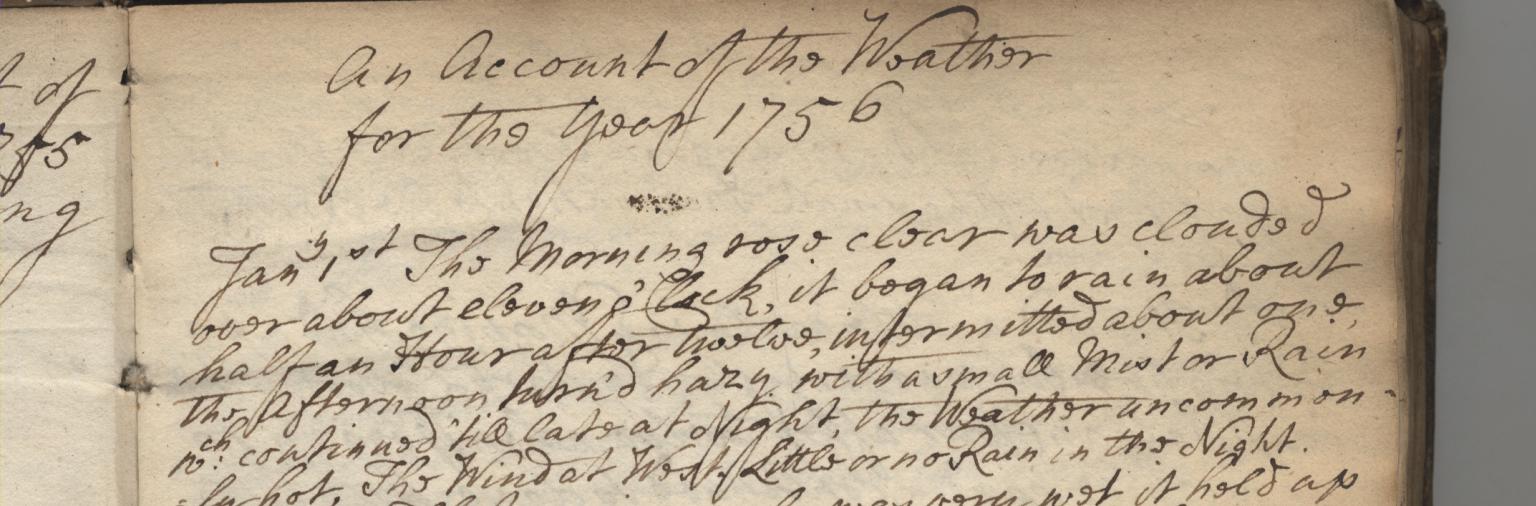 t of
75
ng
An Account of the Weather
for the Year 1756
Jan^y 1st The Morning rose clear was clouded
over about eleven o'Clock, it began to rain about
half an Hour after twelve, intermitted about one,
the Afternoon turn'd hazy with a small Mist or Rain
w^ch: continued 'till late at Night, the Weather uncommon-
ly hot. The Wind at West. Little or no Rain in the Night.
was very wet it held up